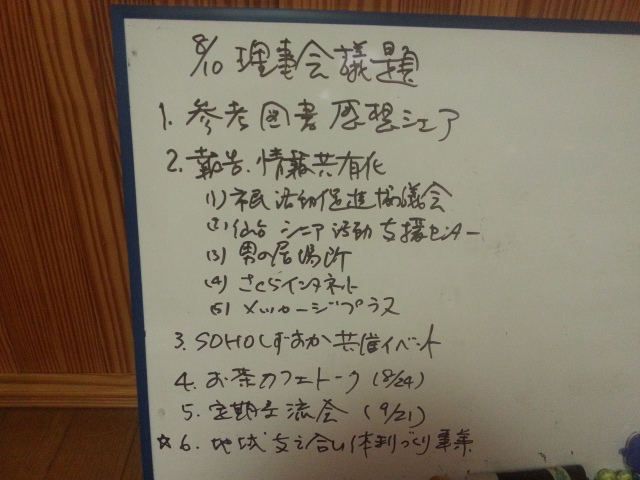 8/10 理事会議題
1. 参考図書感想シェア
2. 報告・情報共有化
(1) 市民活動促進協議会
(2) 仙台シニア活動支援センター
(3) 男の居場所
(4) さくらインタネット
(5) メッセージプラス
3. SOHOしずおか共催イベント
4. お茶カフェトーク (8/24)
5. 定期交流会 (9/21)
☆6. 地域支え合い体制づくり事業